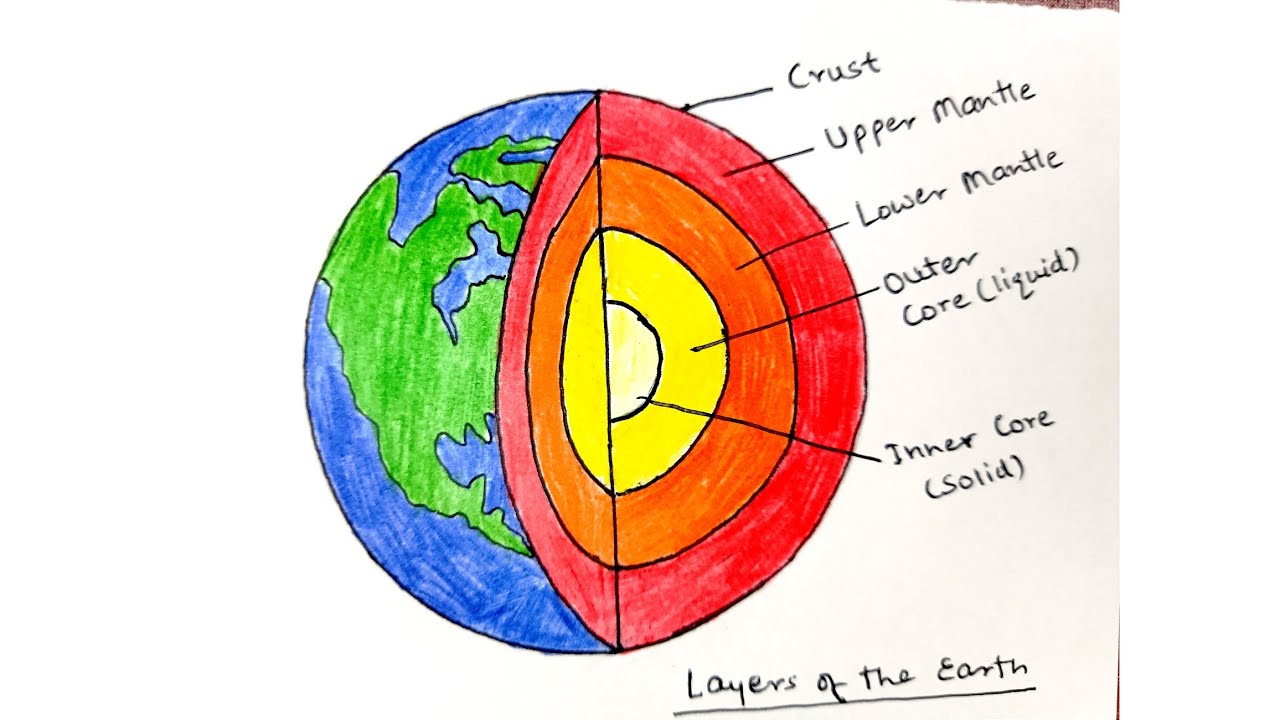 Crust
Upper Mantle
Lower Mantle
Outer
Core (liquid)
Inner Core
(Solid)
Layers of the Earth